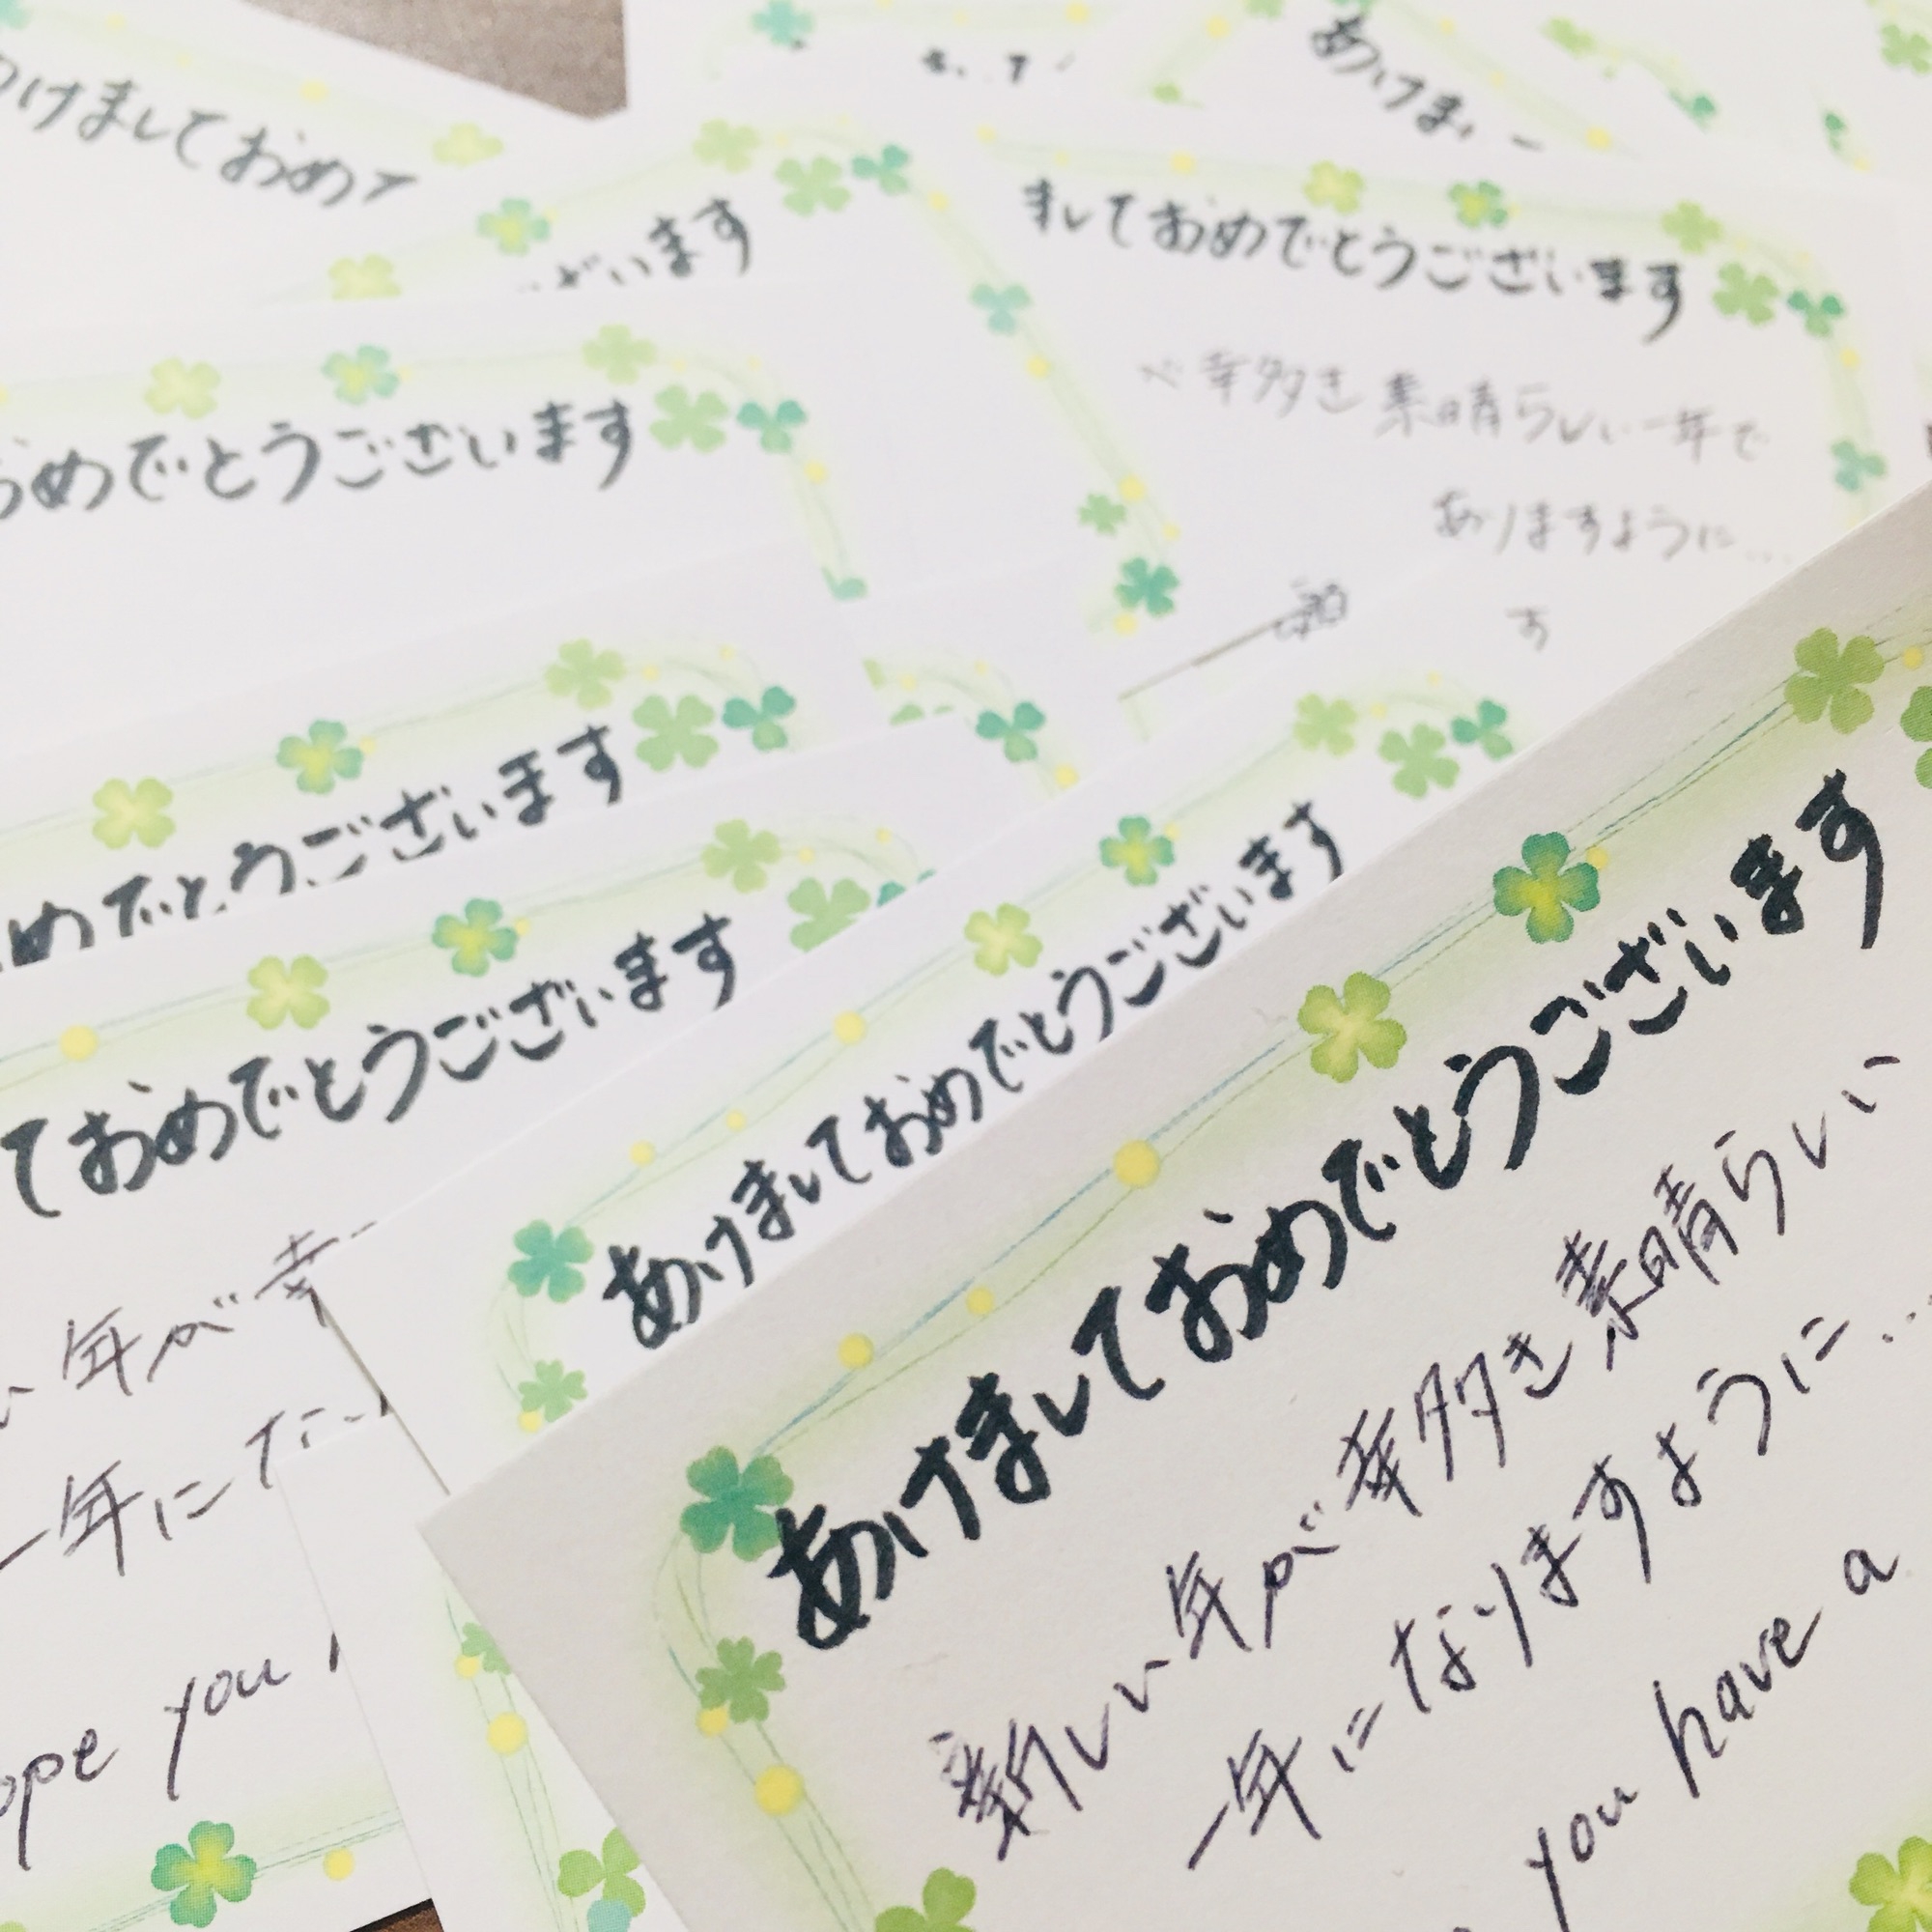 けましておめ
あけま
ございます
ましておめでとうございます
幸多き素晴らしい一年で
ありますように...
おめでとうございます
めでとうございます
ておめでとうございます
い年が幸
一年にな
ope you
あけましておめでとうございます
あけましておめでとうございます
新しい年が幸多き素晴らしい
一年になりますように...
you have a